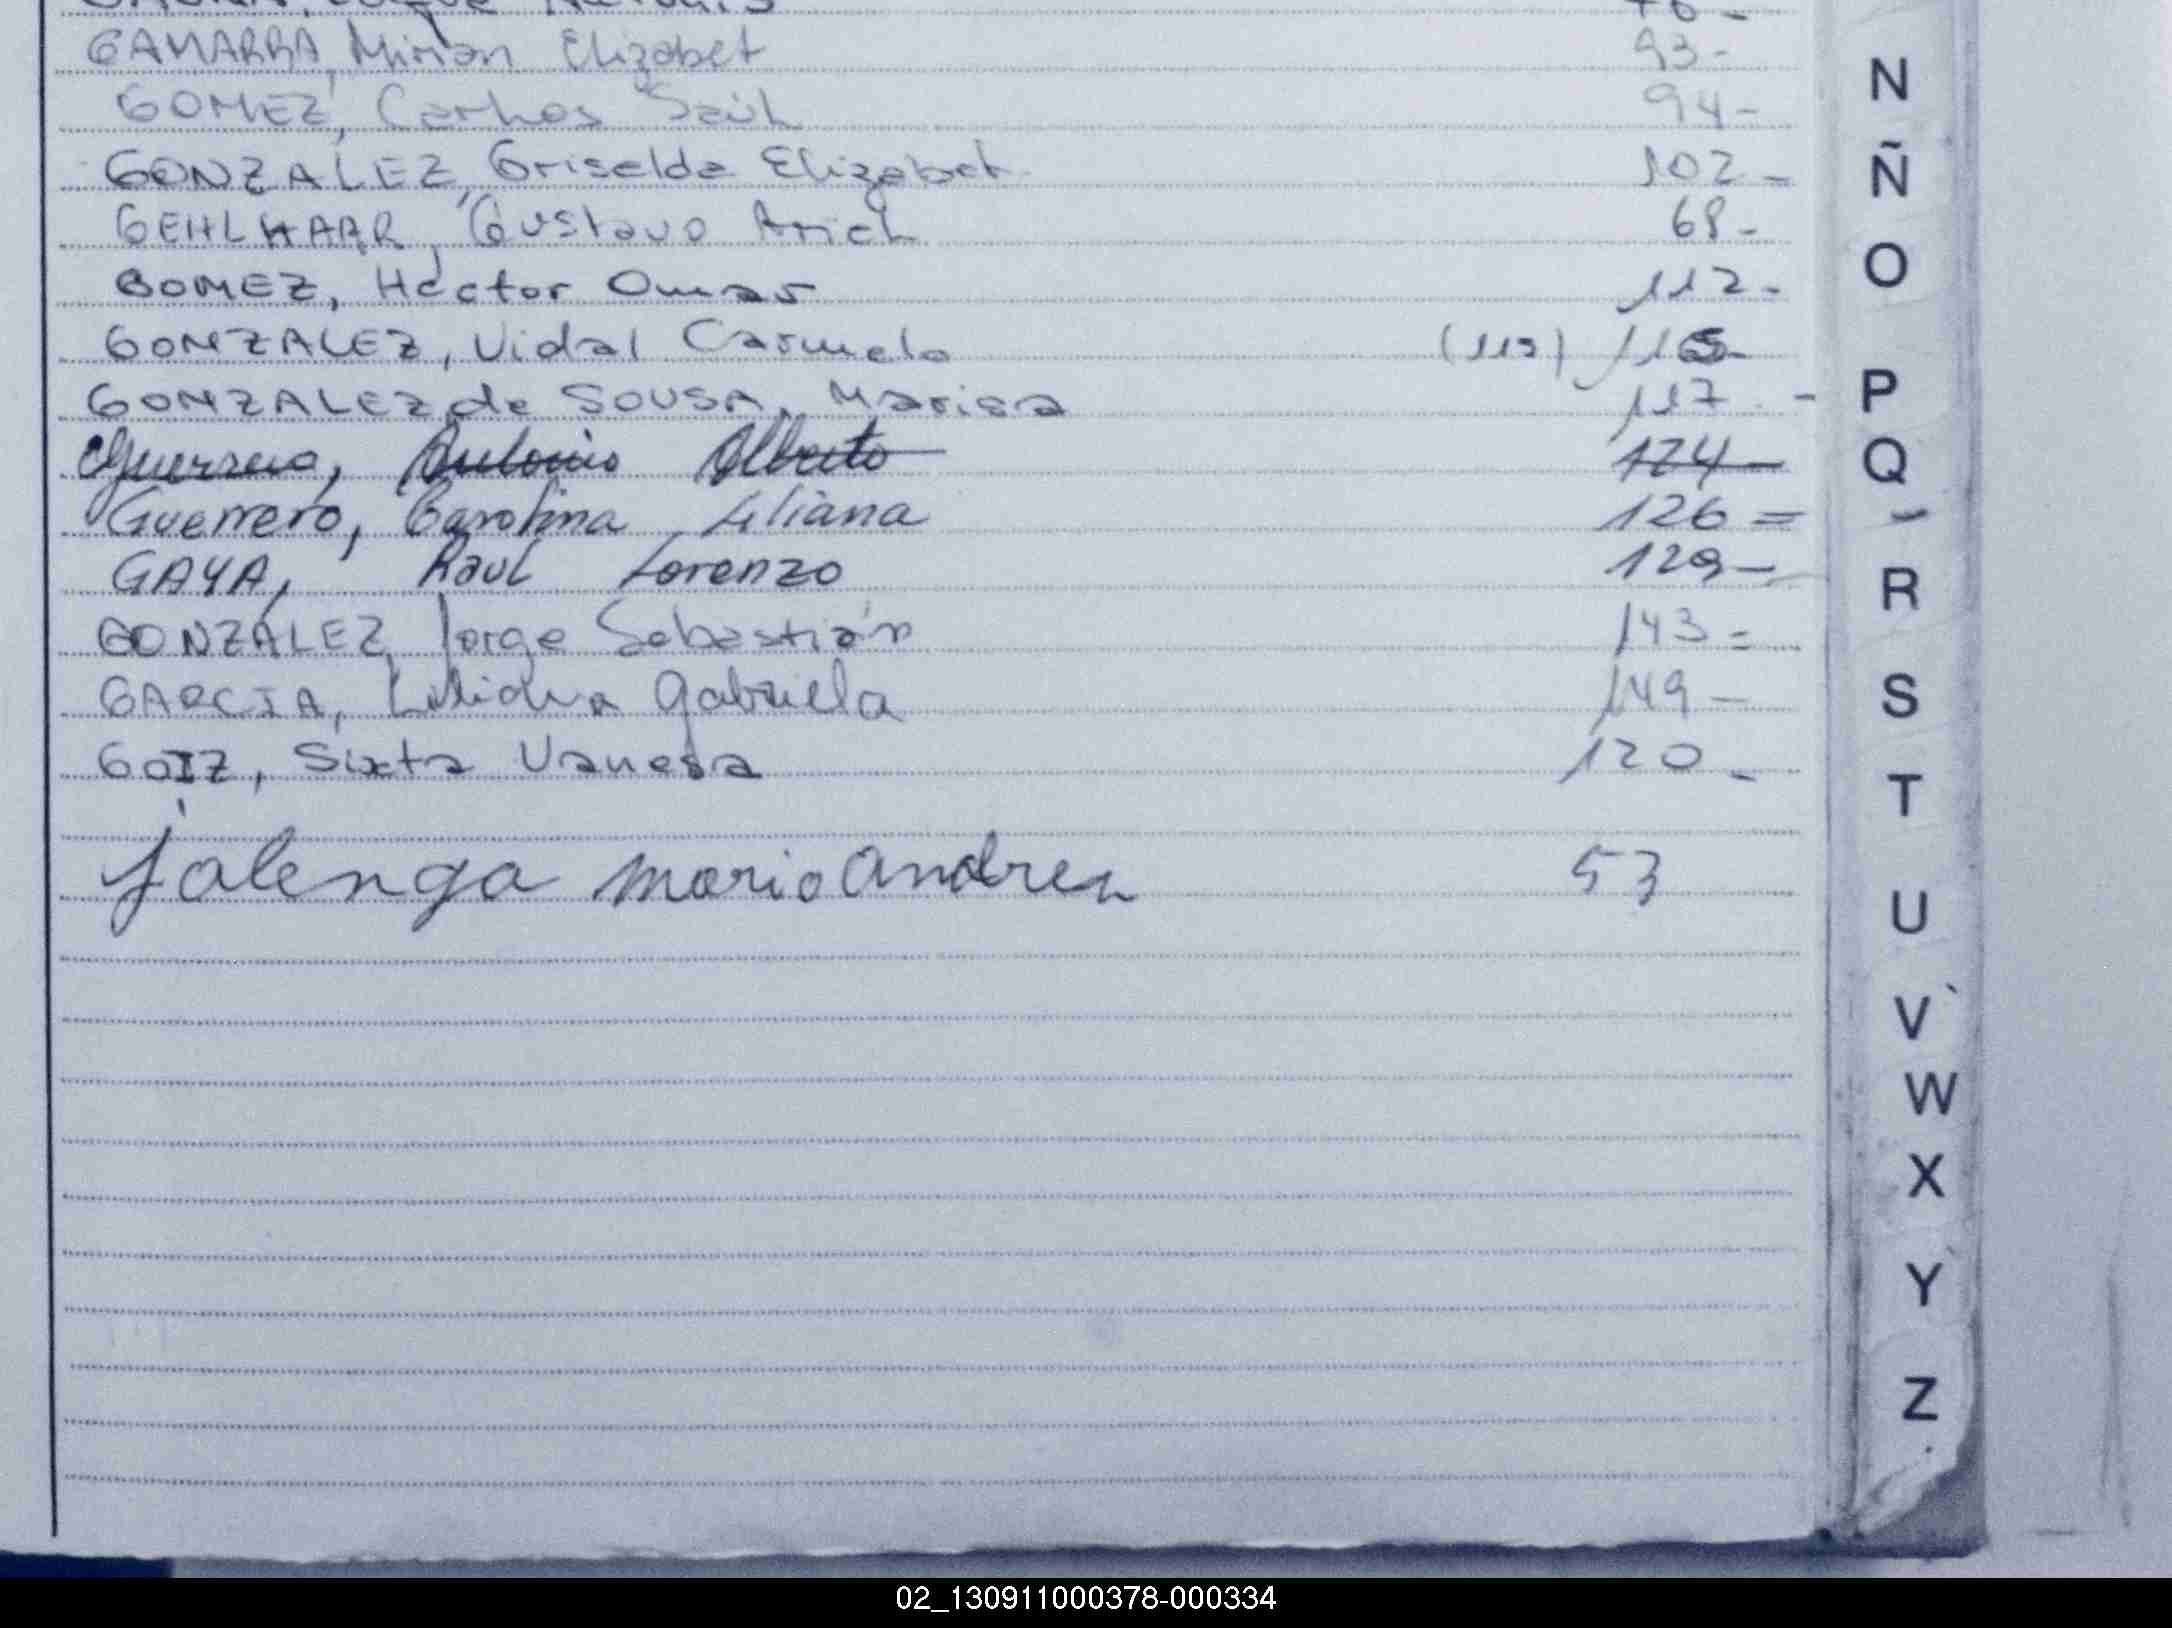 GAMARRA, Mirian Elizabet 93-
GOMEZ, Carlos Saúl 94-
GONZALEZ, Griselda Elizabet 102-
GEHLHAAR, Gustavo Ariel 68-
GOMEZ, Héctor Omar 112-
GONZALEZ, Vidal Carmelo (115) 116-
GONZALEZ de SOUSA, Marisa 117 -
Guerrero, Antonio Alberto 124-
Guerrero, Carolina Liliana 126=
GAYA, Raul Lorenzo 129-
GONZÁLEZ, Jorge Sebastián 143=
GARCIA, Liliana Gabriela 149-
GOIZ, Sixta Vanesa 120-
Jalenga Mario Andres 53
N
Ñ
O
P
Q
R
S
T
U
V
W
X
Y
Z
02_130911000378-000334